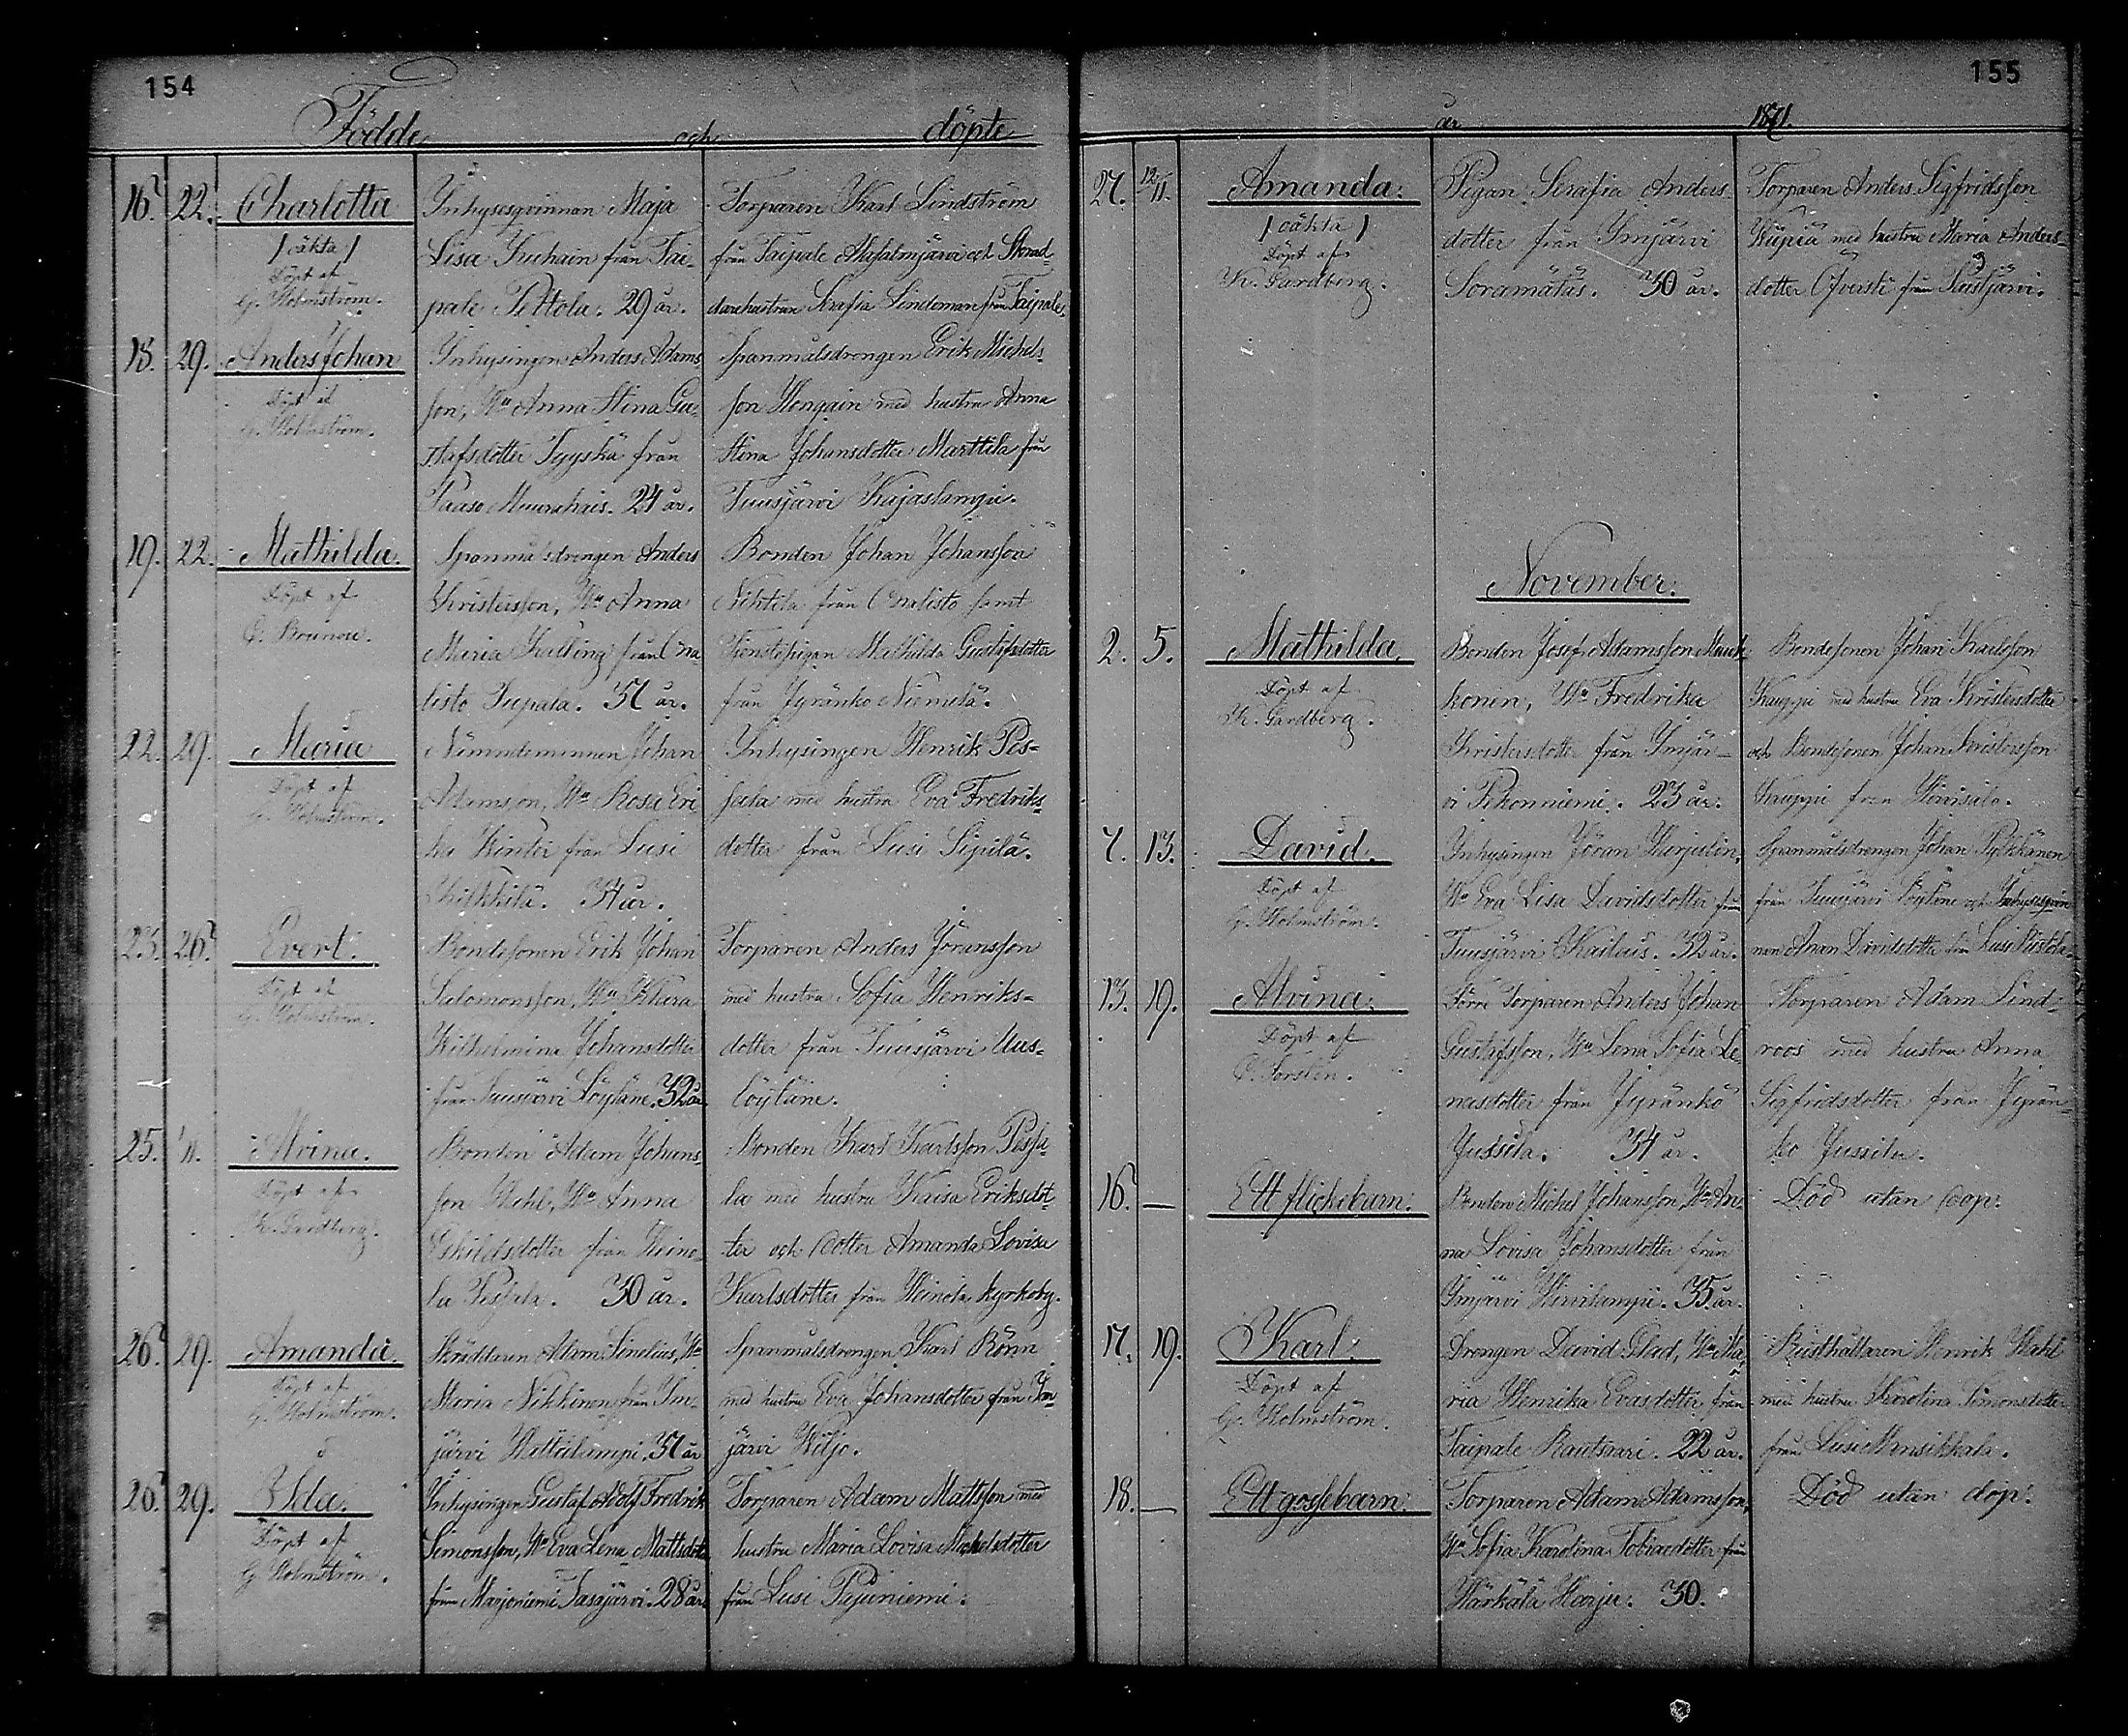 154
Födde och döpte
16. 22. Charlotta
/oäkta/
Döpt af
G. Holmström.
Inhysesqvinnan Maja
Lisa Kuhain från Tai-
pale Pettola. 29 år.
Torparen Karl Lindström
från Taipale Masalmjärvi och Skred-
darehustrun Serafia Lindeman från Taipale.
18. 29. Anders Johan
Döpt af
G. Holmström.
Inhysingen Anders Adams
son, Hu Anna Stina Gu-
stafsdotter Tyyskä från
Paaso Muurahais. 24 år.
Spanmålsdrengen Erik Michels-
son Hongain med hustru Anna
Stina Johansdotter Marttila från
Tuusjärvi Kajaslampi.
19. 22. Mathilda.
Döpt af
C. Brunou.
Spanmålsdrengen Anders
Kristersson, Hu Anna
Maria från Ona
listo Pupala. 31 år.
Bonden Johan Johansson
Nihtilä från Onalisto samt
Tjenstepigan Mathilda Gustafsdotter
från Jyränko Niemelä.
22. 29. Maria
Döpt af
G. Holmström.
Nämndemannen Johan
Adamsson, Hu Rosa Eri
ka från Lusi
34 år.
Inhysingen Henrik Pes-
sala med hustru Eva Fredriks-
dotter från Lusi Sipilä.
23. 26. Evert.
Döpt af
G. Holmström.
Bondesonen Erik Johan
Salomonsson, Hu Klara
Wilhelmina Johansdotter
från Tuusjärvi Löyläne. 32 år
Torparen Anders Jöransson
med hustru Sofia Henriks-
dotter från Tuusjärvi Uus-
löyläne.
25. 1/11. Alvina.
Döpt af
K. Gardberg.
Bonden Adam Johans-
son Wahl, Hu Anna
Eskildsdotter från Heino-
la Pessala. 30 år.
Bonden Karl Karlsson Pessa-
la med hustru Kaisa Eriksdot-
ter och dotter Amanda Lovisa
Karlsdotter från Heinola kyrkoby.
26. 29. Amanda.
Döpt af
G. Holmström.
Skräddaren Adam Sinelius, Hu
Maria Nikkinen från Im-
järvi 31 år
Spanmålsdrengen Karl Rönn
med hustru Eva Johansdotter från Im
järvi Wiljo.
26. 29. Ida.
Döpt af
G. Holmström.
Inhysingen Gustaf Adolf Fredrik
Simonsson, Hu Eva Lena Mattsdotter
från Marjoniemi Sasajärvi. 28 år
Torparen Adam Mattsson med
hustru Maria Lovisa Michelsdotter
från Lusi Pajuniemi.
155
år 1871.
27. 12/11. Amanda.
/oäkta/
Döpt af
K. Gardberg.
Pigan Serafia Anders
dotter från Imjärvi
Soramätäs. 30 år.
Torparen Anders Sigfridsson
med hustru Maria Anders-
dotter Öfversti från Paistjärvi.
November.
2. 5. Mathilda.
Döpt af
K. Gardberg.
Bonden Josef Adamsson Mank-
konen, Hu Fredrika
Kristersdotter från Imjär-
vi Pekonniemi. 23 år.
Bondesonen Johan Karlsson
Kauppi med hustru Eva Kristersdotter
och Bondesonen Johan Kristersson
Kauppi från Hirvisalo.
7. 13. David.
Döpt af
G. Holmström.
Inhysingen Jöran Harjulin,
Hu Eva Lisa Davidsdotter från
Tuusjärvi Kailais. 32 år.
Spanmålsdrengen Johan Pylkkänen
från Tuusjärvi Löyläne och Inhysesqvin
nan Anna Davidsdotter från Lusi
13. 19. Alvina.
Döpt af
C. Forstén.
Förre Torparen Anders Johan
Gustafsson, Hu Lena Sofia Le-
nasdotter från Jyränkö
Jussila. 34 år.
Torparen Adam Lind-
roos med hustru Anna
Sigfridsdotter från Jyrän-
ko Jussila.
16. — Ett flickebarn.
Bonden Michel Johansson, Hu An-
na Lovisa Johansdotter från
Imjärvi Hirvilampi. 35 år.
Död utan dop.
17. 19. Karl.
Döpt af
G. Holmström.
Drengen David Glad, Hu Ma-
ria Henrika Evasdotter från
Taipale Rautsaari. 22 år.
Rusthållaren Henrik Wahl
med hustru Karolina Simonsdotter
från Lusi Mansikkala.
18. — Ett gossebarn.
Torparen Adam Adamsson,
Hu Sofia Karolina Tobiaedotter från
Härkälä Harju. 30.
Död utan dop.